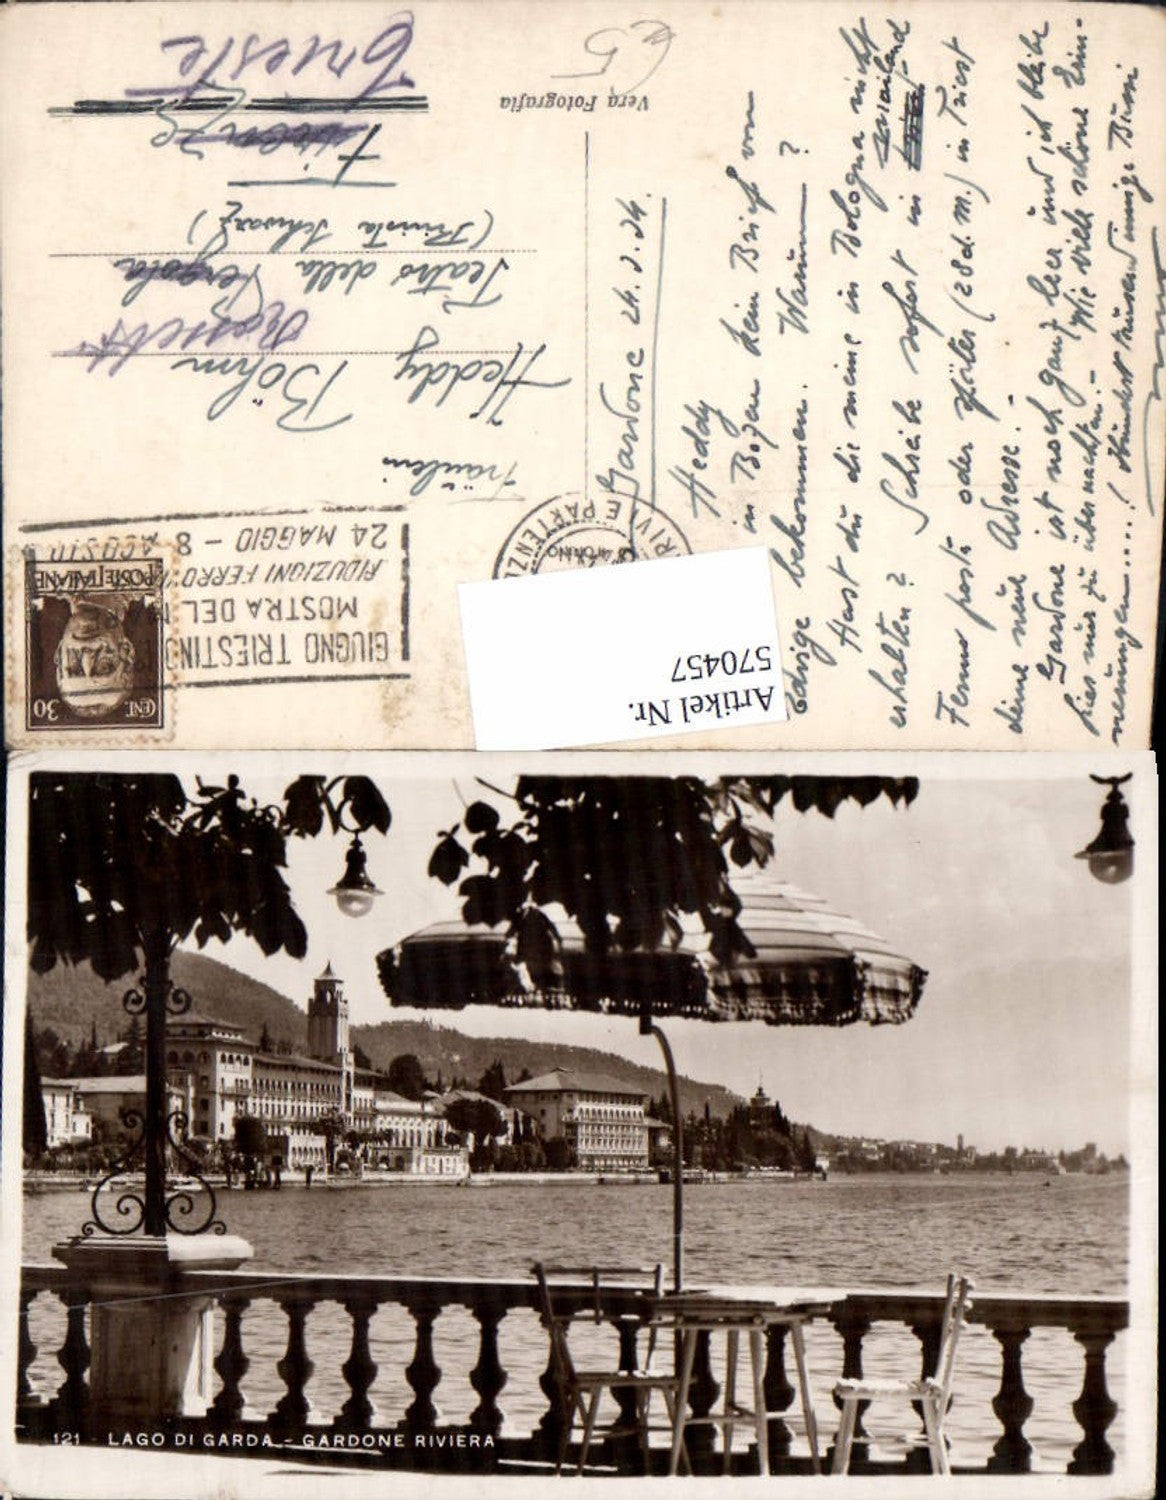 Vera Fotografia
GIUGNO TRIESTINO
MOSTRA DEL MARE
RIDUZIONI FERROV.
24 MAGGIO - 8 AGOSTO
POSTE ITALIANE
CENT. 30
Fräulein
Heddy Böhm
Rossetti
Teatro della Pergola
(Rivista Schwarz)
Firenze
Trieste
Artikel Nr.
570457
Gardone 24.5.34.
Heddy
in Bozen kein Brief von
Edvige bekommen. Warum?
Hast du die meine in Bologna nicht
erhalten? Schreibe sofort in Mailand
Fermo posta oder später (28 d. M.) in Triest
deine neue Adresse.-
Gardone ist noch ganz leer und ich bleibe
hier nur zu übernachten.- Wie viele schöne Erin-
nerungen.....! Hundert tausend innige Bussi
121 - LAGO DI GARDA - GARDONE RIVIERA